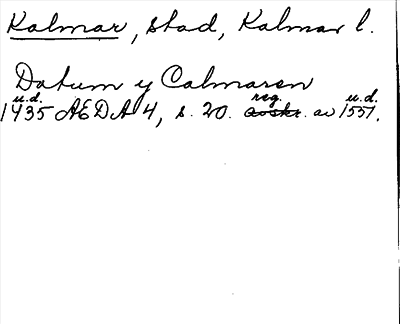 Kalmar, stad, Kalmar l.
Datum y Calmaren
u.d. reg. u.d.
1435 AEDA 4, s. 20. avskr. av 1551.